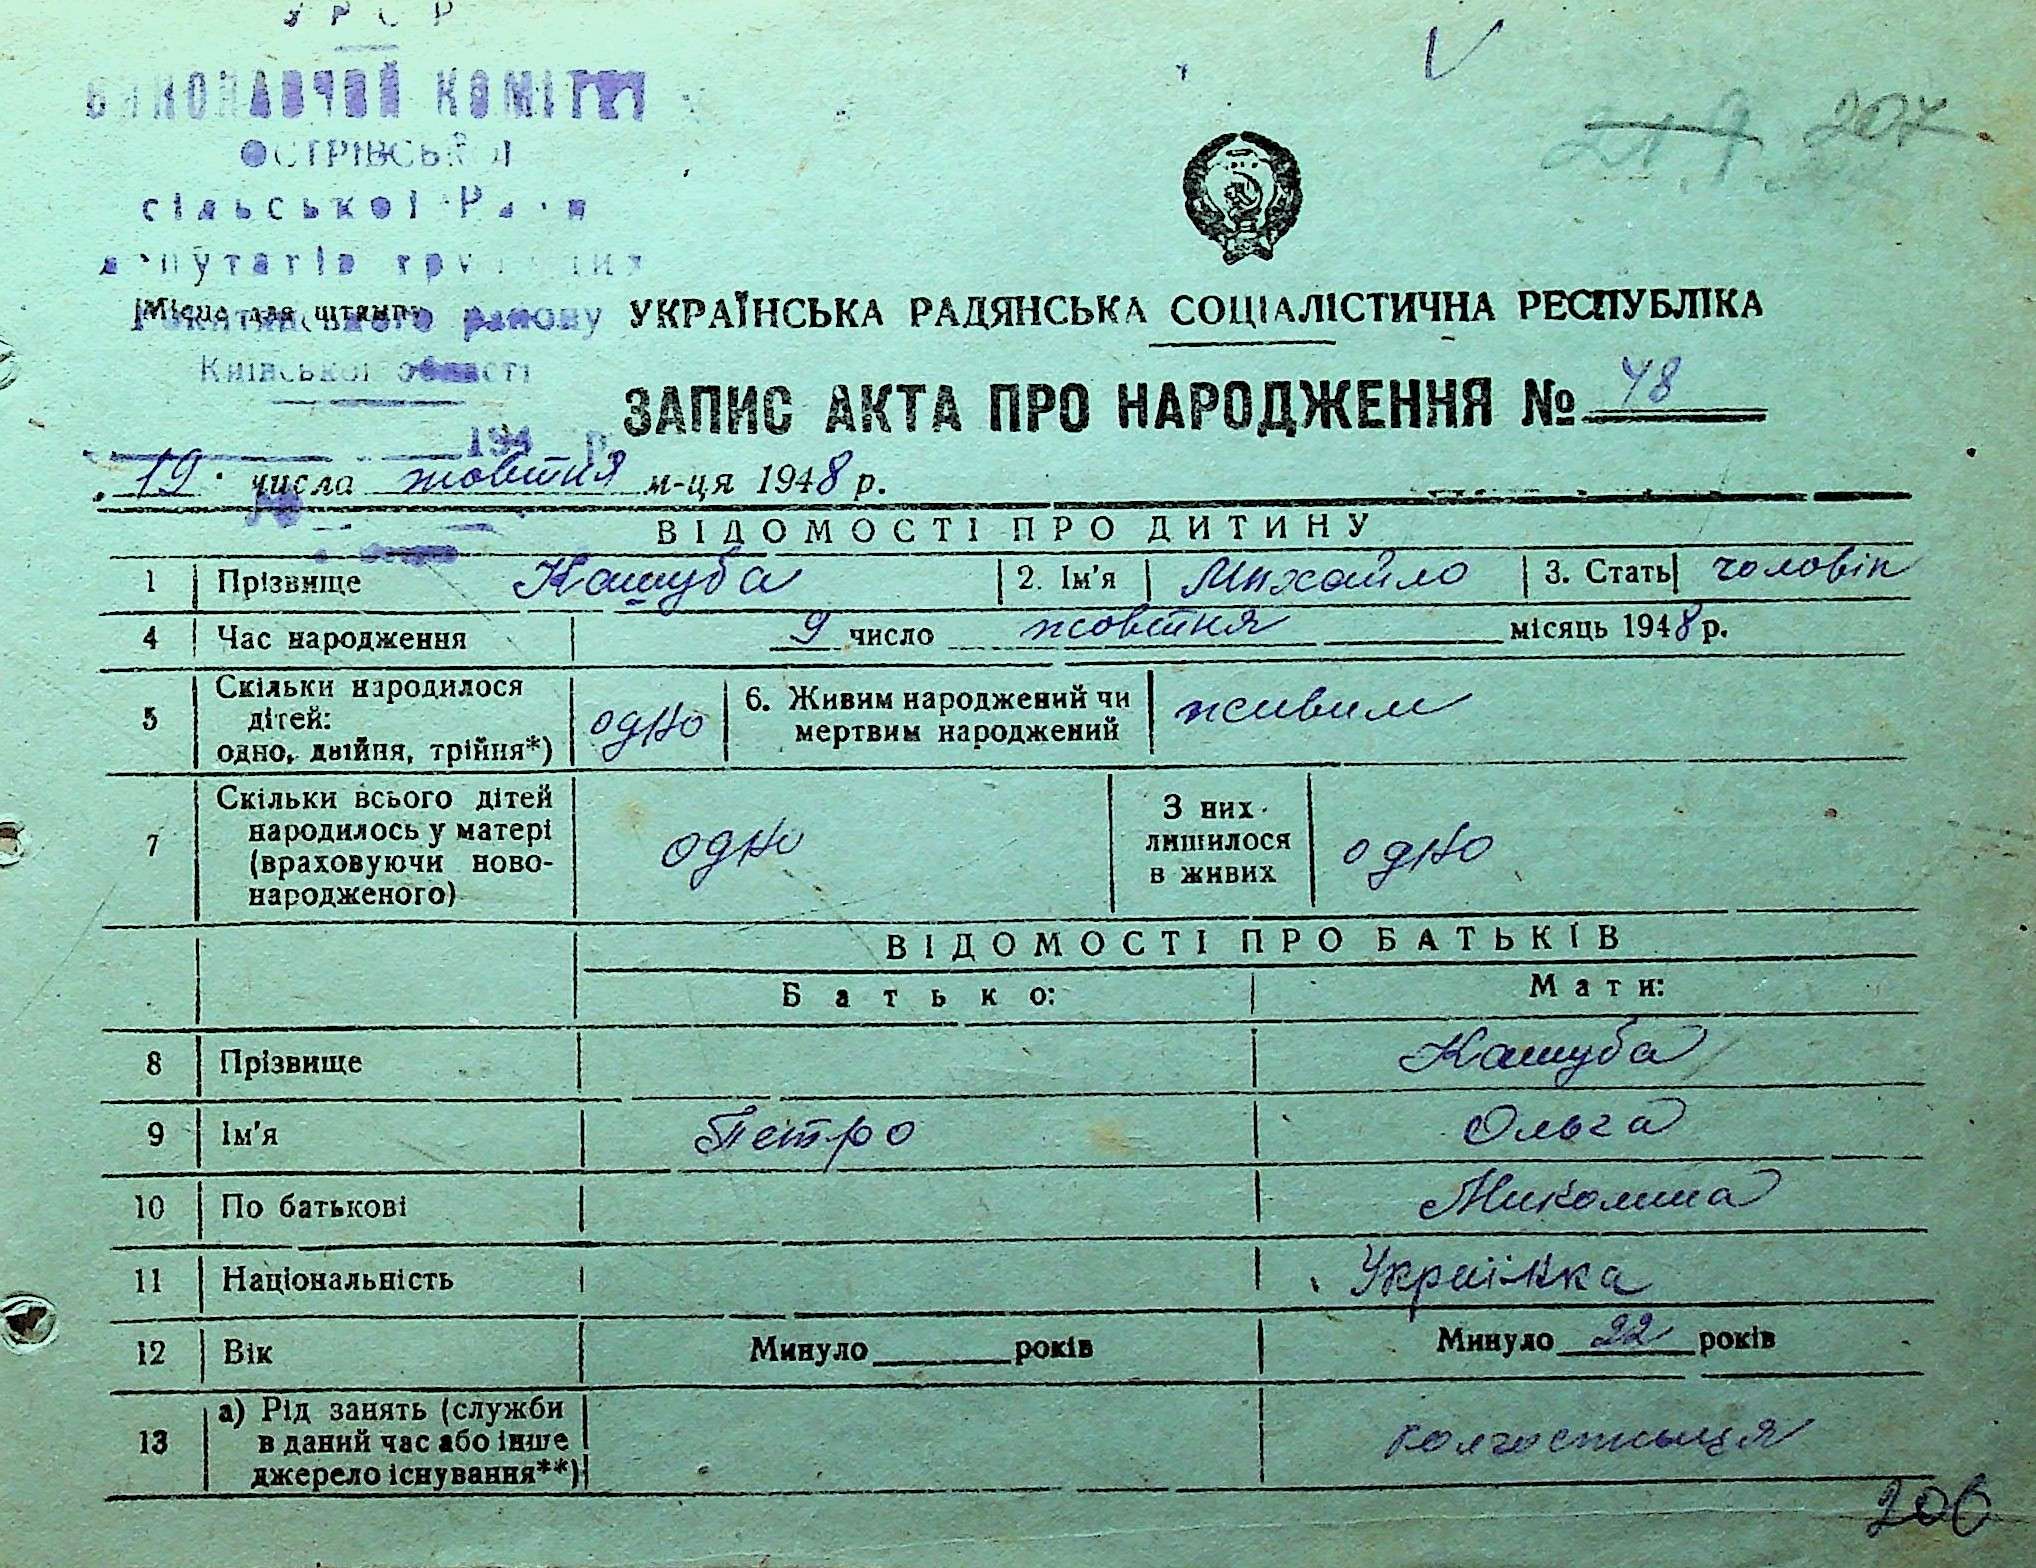 УРСР
ВИКОНАВЧИЙ КОМІТЕТ
ОСТРІВСЬКОЇ
сільської Ради
депутатів трудящих
Місце для штампу
Рокитнянського району
Київської області
194 р.
№
207
УКРАЇНСЬКА РАДЯНСЬКА СОЦІАЛІСТИЧНА РЕСПУБЛІКА
ЗАПИС АКТА ПРО НАРОДЖЕННЯ № 48
19 числа жовтня м-ця 1948 р.
ВІДОМОСТІ ПРО ДИТИНУ
1 Прізвище Кашуба 2. Ім'я Михайло 3. Стать чоловік
4 Час народження 9 число жовтня місяць 1948 р.
5 Скільки народилося дітей: одно, двійня, трійня*) одно 6. Живим народжений чи мертвим народжений живим
7 Скільки всього дітей народилось у матері (враховуючи ново-народженого) одно З них лишилося в живих одно
ВІДОМОСТІ ПРО БАТЬКІВ
Батько: Мати:
8 Прізвище Кашуба
9 Ім'я Петро Ольга
10 По батькові Миколиша
11 Національність Українка
12 Вік Минуло ___ років Минуло 22 років
13 а) Рід занять (служби в даний час або інше джерело існування**) колгостьиця
206